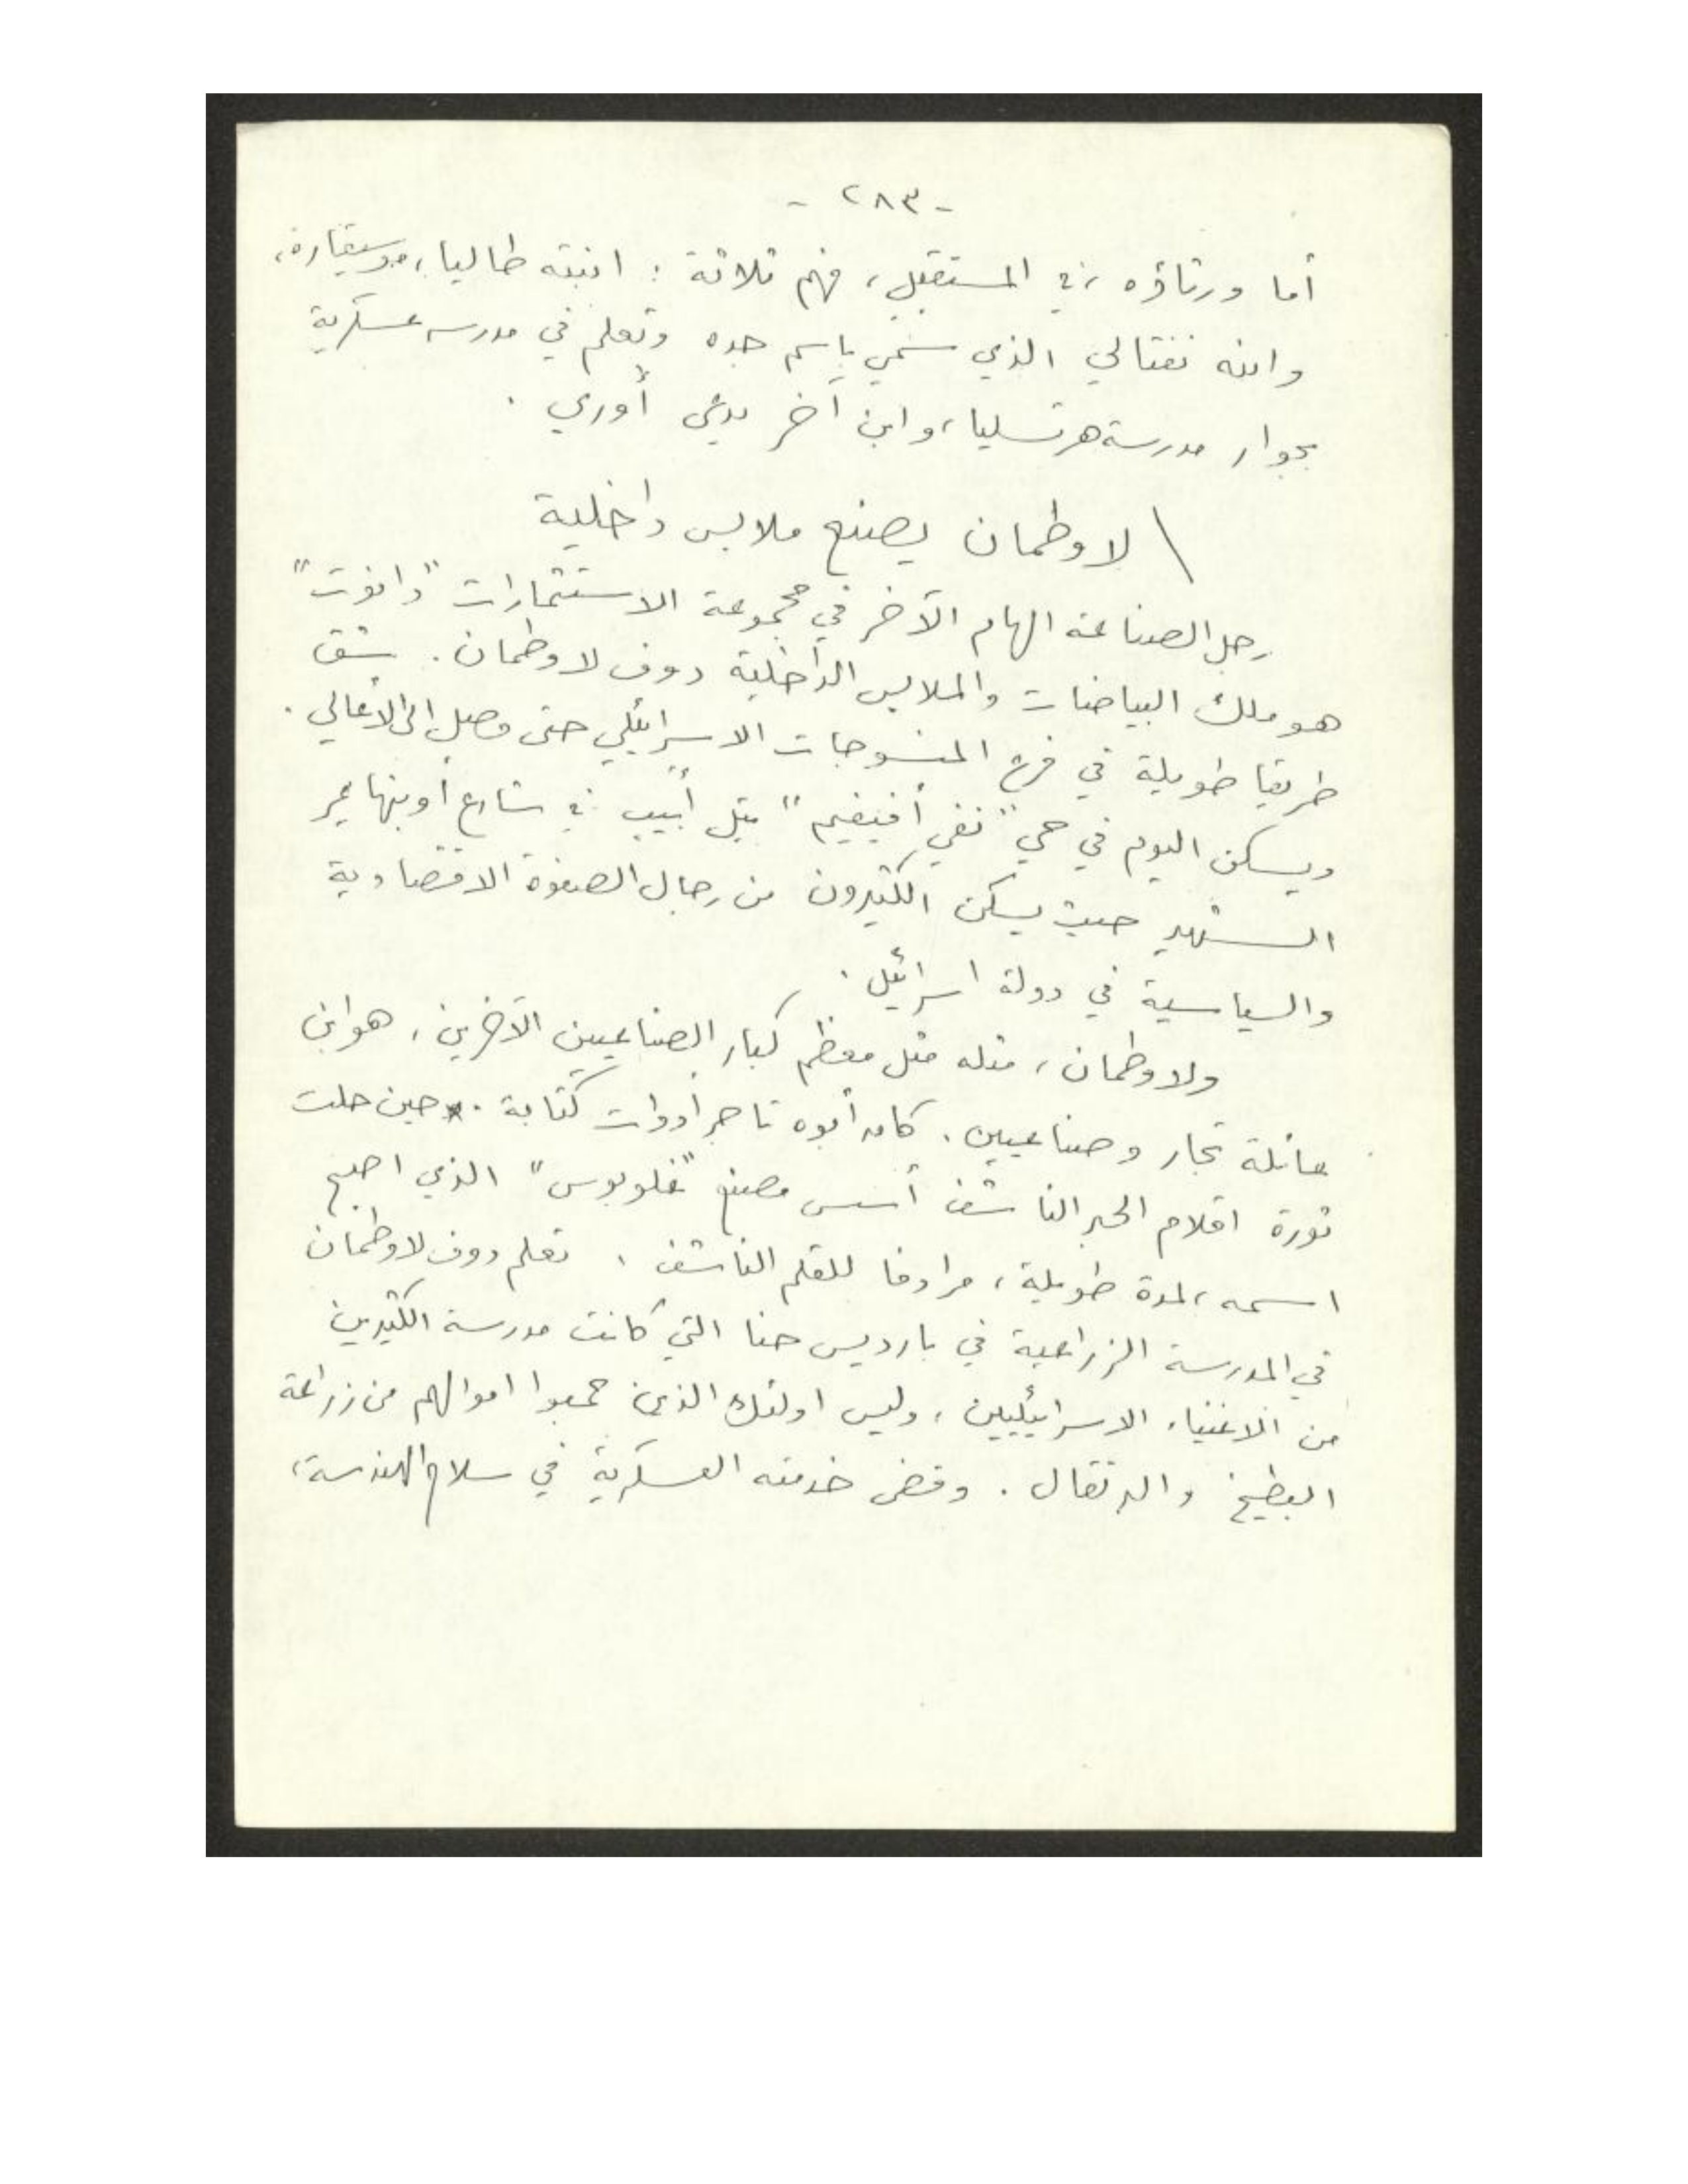 - ٢٨٣ -
أما ورثاؤه ، في المستقبل ، فهم ثلاثة : ابنته طاليا ، موسيقارة ،
وابنه نفتالي الذي سمي باسم جده وتعلم في مدرسة عسكرية
بجوار مدرسة هرتسليا ، وابن آخر يدعى أوري .
\ لاوطمان يصنع ملابس داخلية
رجل الصناعة الهام الآخر في مجموعة الاستثمارات "دانوت"
هو ملك البياضات والملابس الداخلية دوف لاوطمان . شق
طريقا طويلة في فرع المنسوجات الاسرائيلي حتى وصل الى الأعالي .
ويسكن اليوم في حي "نفي أفيفيم" بتل أبيب في شارع أوبنهايمر
الشهير حيث يسكن الكثيرون من رجال الصفوة الاقتصادية
والسياسية في دولة اسرائيل .
ولاوطمان ، مثله مثل معظم كبار الصناعيين الآخرين ، هو ابن
عائلة تجار وصناعيين . كان أبوه تاجر أدوات كتابة . حين حلت
ثورة اقلام الحبر الناشف أسس مصنع "غلوبوس" الذي اصبح
اسمه ، لمدة طويلة ، مرادفا للقلم الناشف . تعلم دوف لاوطمان
في المدرسة الزراعية في بارديس حنا التي كانت مدرسة الكثيرين
من الاغنياء الاسرائيليين ، وليس اولئك الذين جمعوا اموالهم من زراعة
البطيخ والبرتقال . وقضى خدمته العسكرية في سلاح الهندسة ،